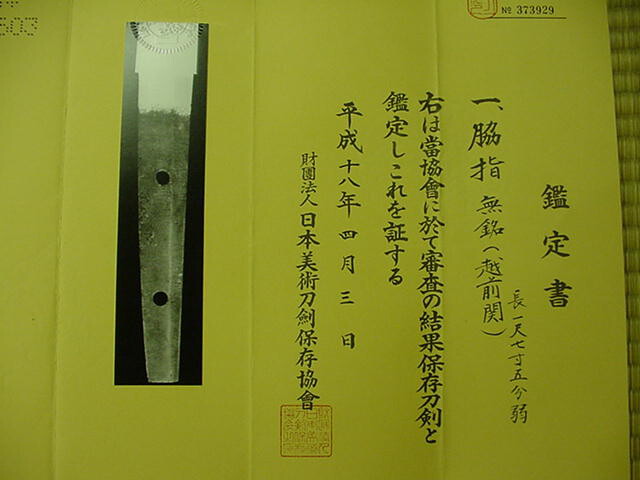 № 373929
鑑定書
一、脇指 無銘(越前関)
長一尺七寸五分弱
右は當協會に於て審査の結果保存刀剣と
鑑定しこれを証する
平成十八年四月三日
財團法人 日本美術刀劍保存協會
503